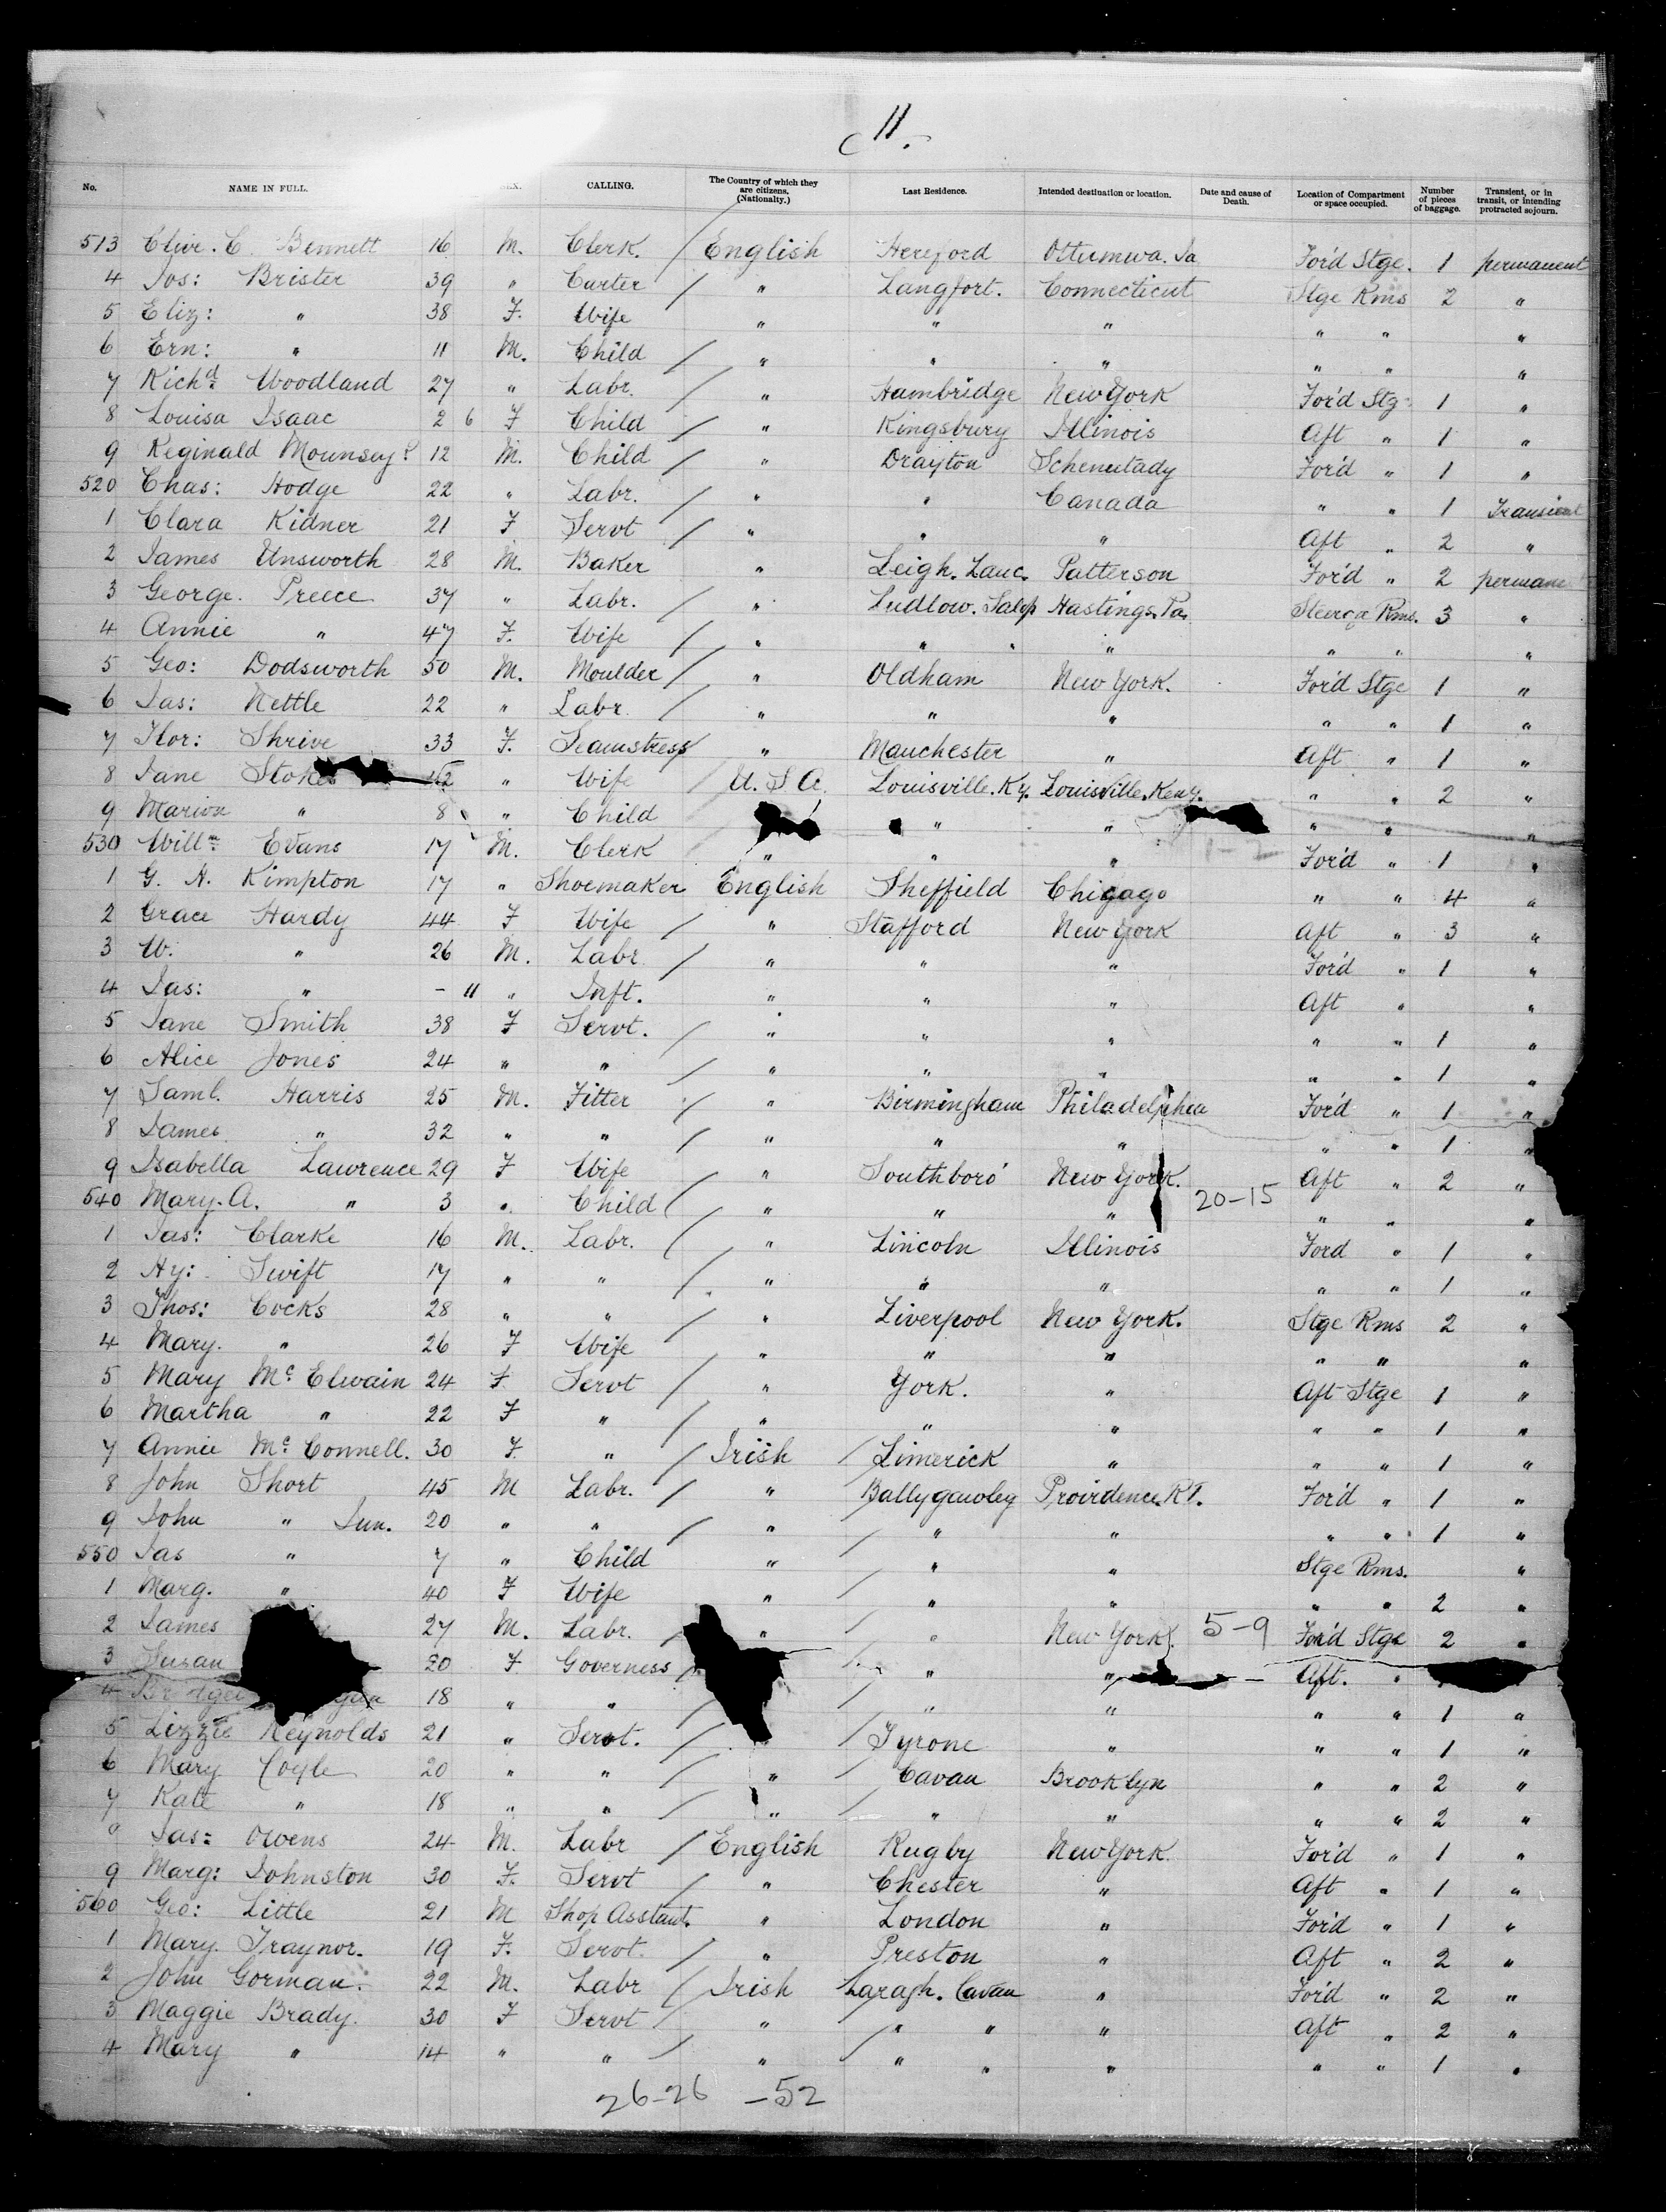 11.
No. NAME IN FULL. SEX. CALLING. The Country of which they are citizens. (Nationalty.) Last Residence. Intended destination or location. Date and cause of Death. Location of Compartment or space occupied. Number of pieces of baggage. Transient, or in transit, or intending protracted sojourn.
513 Clive. C. Bennett 16 M. Clerk. / English Hereford Ottumwa. Ia For'd Stge. 1 permanent
4 Jos: Brister 39 " Carter / " Langfort. Connecticut Stge Rms 2 "
5 Eliz: " 38 F. Wife " " " " " "
6 Ern: " 11 M. Child / " " " " " "
7 Richd Woodland 27 " Labr. / " Hambridge New York For'd Stg: 1 "
8 Louisa Isaac 2 6 F Child / " Kingsbury Illinois Aft " 1 "
9 Reginald Mounsey 12 M. Child / " Drayton Schenectady For'd " 1 "
520 Chas: Hodge 22 " Labr. / " " Canada " " 1 Transient
1 Clara Kidner 21 F Servt / " " " Aft " 2 "
2 James Unsworth 28 M. Baker " Leigh. Lanc. Patterson For'd " 2 perman
3 George. Preece 37 " Labr. / " Ludlow. Salop Hastings. Pa. Steerge Rms. 3 "
4 Annie " 47 F. Wife / " " " " " "
5 Geo: Dodsworth 50 M. Moulder / " Oldham New York. For'd Stge 1 "
6 Jas: Nettle 22 " Labr. / " " " " " 1 "
7 Flor: Shrive 33 F. Seamstress / " Manchester " Aft " 1 "
8 Jane Stokes 42 " Wife / U. S. A. Louisville. Ky. Louisville. Keny. " " 2 "
9 Marion " 8 " Child " " " " "
530 Willm Evans 17 M. Clerk " " " For'd " 1 "
1 G. H. Kimpton 17 " Shoemaker English Sheffield Chicago " " 4 "
2 Grace Hardy 44 F Wife / " Stafford New York Aft " 3 "
3 W. " 26 M. Labr / " " " For'd " 1 "
4 Jas: " - 11 " Inft. " " " Aft " "
5 Jane Smith 38 F Servt. / " " " " " 1 "
6 Alice Jones 24 " " / " " " " " 1 "
7 Saml. Harris 25 M. Fitter / " Birmingham Philadelphia For'd " 1 "
8 James " 32 " " / " " " " " 1 "
9 Isabella Lawrence 29 F Wife " Southboro' New York. Aft " 2 "
540 Mary. A. " 3 " Child / " " " 20-15 " " "
1 Jas: Clarke 16 M. Labr. / " Lincoln Illinois Ford " 1 "
2 Hy: Swift 17 " " / " " " " " 1 "
3 Thos: Cocks 28 " " / " Liverpool New York. Stge Rms 2 "
4 Mary. " 26 F Wife " " " " " "
5 Mary Mc Elwain 24 F Servt / " York. " Aft Stge 1 "
6 Martha " 22 F " / " " " " " 1 "
7 Annie Mc Connell. 30 F. " / Irish / Limerick " " " 1 "
8 John Short 45 M Labr. / " Ballygawley Providence. R.I. For'd " 1 "
9 John " Jun. 20 " " / " / " " " " 1 "
550 Jas " 7 " Child " " " Stge Rms. "
1 Marg. " 40 F Wife " / " " " " 2 "
2 James 27 M. Labr. / " / " New York. 5-9 For'd Stge 2 "
3 Susan 20 F Governess / / " " Aft. "
4 18 " " / / " " " " 1 "
5 Lizzie Reynolds 21 " Servt. / / Tyrone " " " 1 "
6 Mary Coyle 20 " " / " Cavan Brooklyn " " 2 "
7 Kate " 18 " " / " / " " " " 2 "
Jas: Owens 24 M. Labr / English Rugby New York. For'd " 1 "
9 Marg: Johnston 30 F. Servt / " Chester " Aft " 1 "
560 Geo: Little 21 M Shop Asstant. " London " For'd " 1 "
1 Mary. Traynor. 19 F. Servt. / " Preston " Aft " 2 "
2 John Gorman. 22 M. Labr / Irish Laragh. Cavan " For'd " 2 "
3 Maggie Brady. 30 F Servt / " / " " " Aft " 2 "
4 Mary " 14 " " / " / " " " " " 1 "
26-26 -52